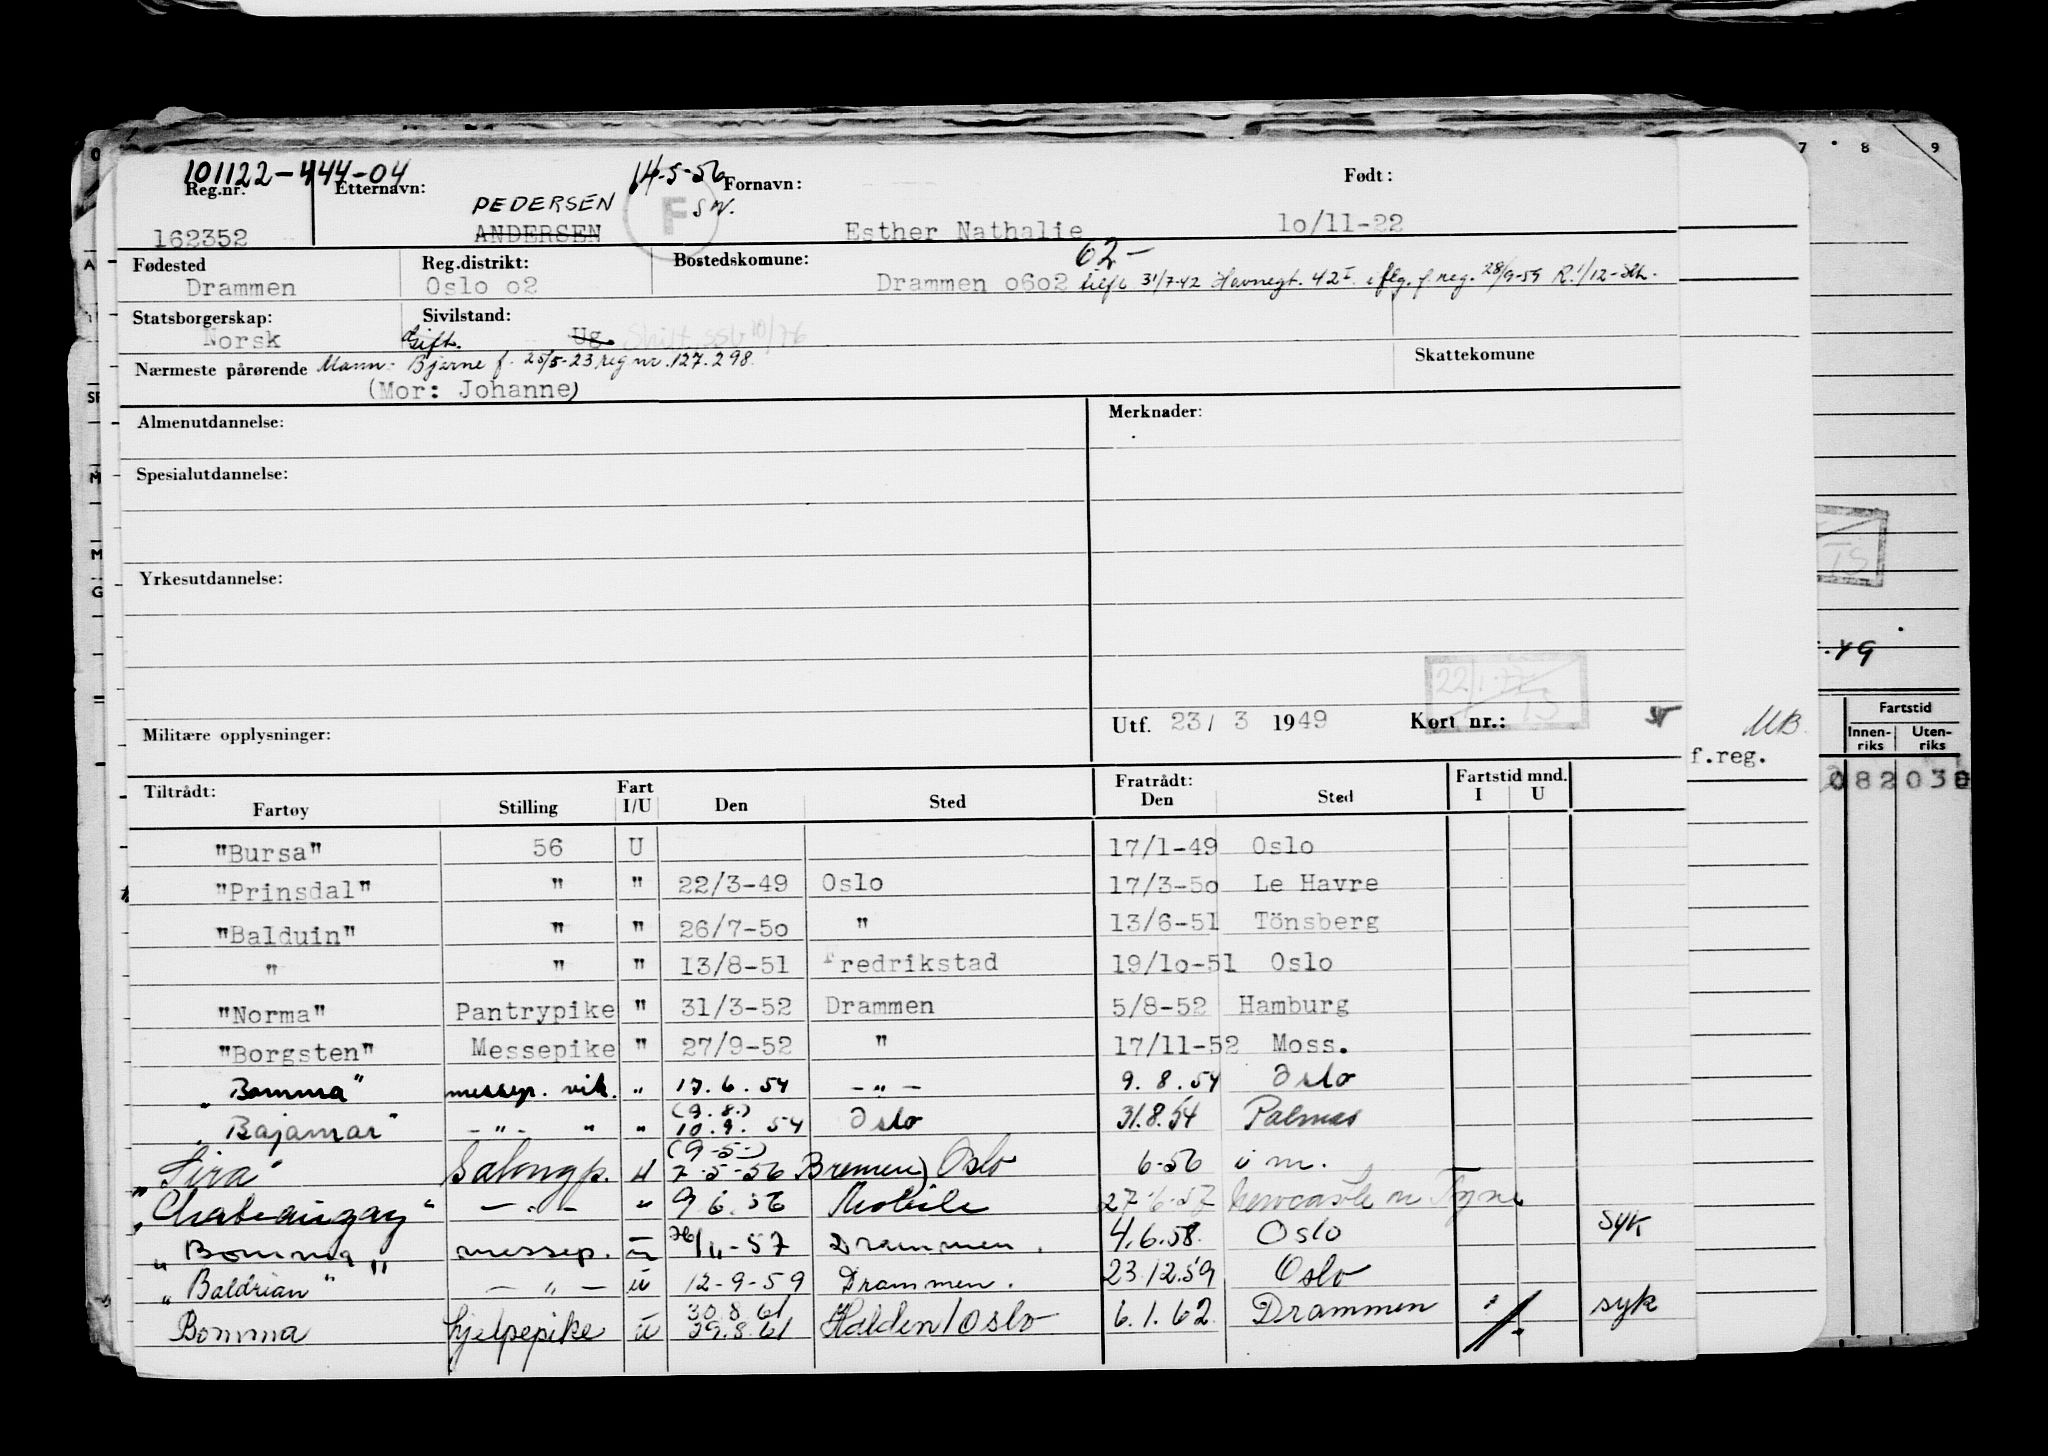 101122-444-04 14-5-56
Reg.nr. Etternavn: Fornavn: Født:
PEDERSEN F SW.
162352 ANDERSEN Esther Nathalie 1o/11-22
Fødested Reg.distrikt: Bostedskomune: 02-
Drammen Oslo o2 Drammen o6o2 31/7-42 Havnegt. 42 I iflg. f. reg. 28/9-59
Statsborgerskap: Sivilstand:
Norsk Gift. Ug. Skilt SSB 10/76
Nærmeste pårørende Mann: Bjarne f. 25/5-23 reg nr. 127.298. Skattekomune
(Mor: Johanne)
Almenutdannelse: Merknader:
Spesialutdannelse:
Yrkesutdannelse:
22/1-77
Militære opplysninger: Utf. 23/ 3 1949 Kort nr.:
Tiltrådt: Fart Fratrådt: Fartstid mnd.
Fartøy Stilling I/U Den Sted Den Sted I U
"Bursa" 56 U 17/1-49 Oslo
"Prinsdal" " " 22/3-49 Oslo 17/3-5o Le Havre
"Balduin" " " 26/7-5o " 13/6-51 Tönsberg
" " " 13/8-51 Fredrikstad 19/1o-51 Oslo
"Norma" Pantrypike " 31/3-52 Drammen 5/8-52 Hamburg
"Borgsten" Messepike " 27/9-52 " 17/11-52 Moss.
"Bomma" messep. vik. " 17.6.54 -"- 9.8.54 Oslo
"Bajamar" -"- " " (9.8.) 10.9.54 Oslo 31.8.54 Palmas
"Sira" Salongp. U (9-5-) 7-5-56 Bremen) Oslo 6-56 i m.
"Chateaugay" -"- " 9.6.56 Mobile 27.6.57 Newcastle on Tyne
"Bomma" messep. U 26/11-57 Drammen. 4.6.58. Oslo syk
"Baldrian" -"- U 12-9-59 Drammen. 23.12.59 Oslo
Bomma hjelpepike U 30.8.61 29.8.61 Halden/Oslo 6.1.62 Drammen syk
7 8 9
.49
MB.
f.reg.
Fartstid
Innen-riks Uten-riks